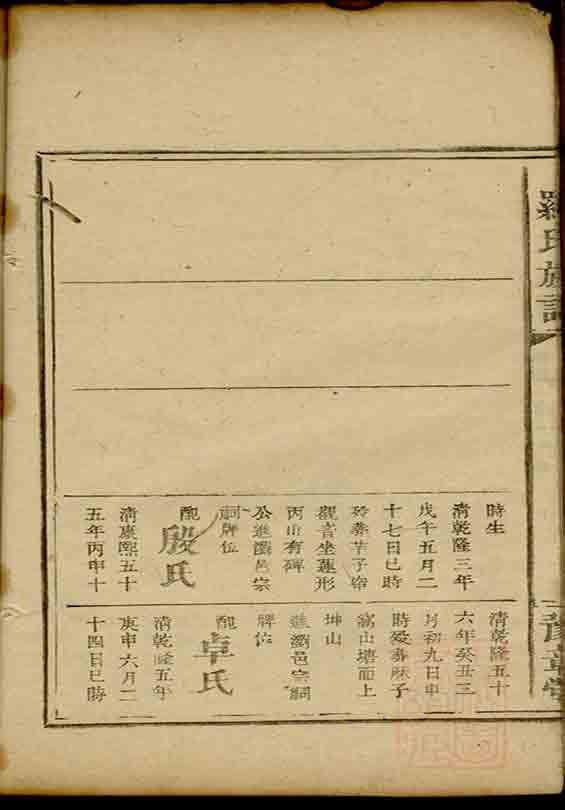 羅氏族譜
豫章堂
時生
清乾隆三年
戊午五月二
十七日巳時
觀音坐蓮形
丙山有碑
公進瀏邑宗
祠牌位
配殷氏
清康熙五十
五年丙申十
清乾隆五十
六年癸丑三
月初九日申
窩山塘面上
坤山
進瀏邑宗祠
牌位
配卓氏
清乾隆五年
庚申六月二
十四日巳時